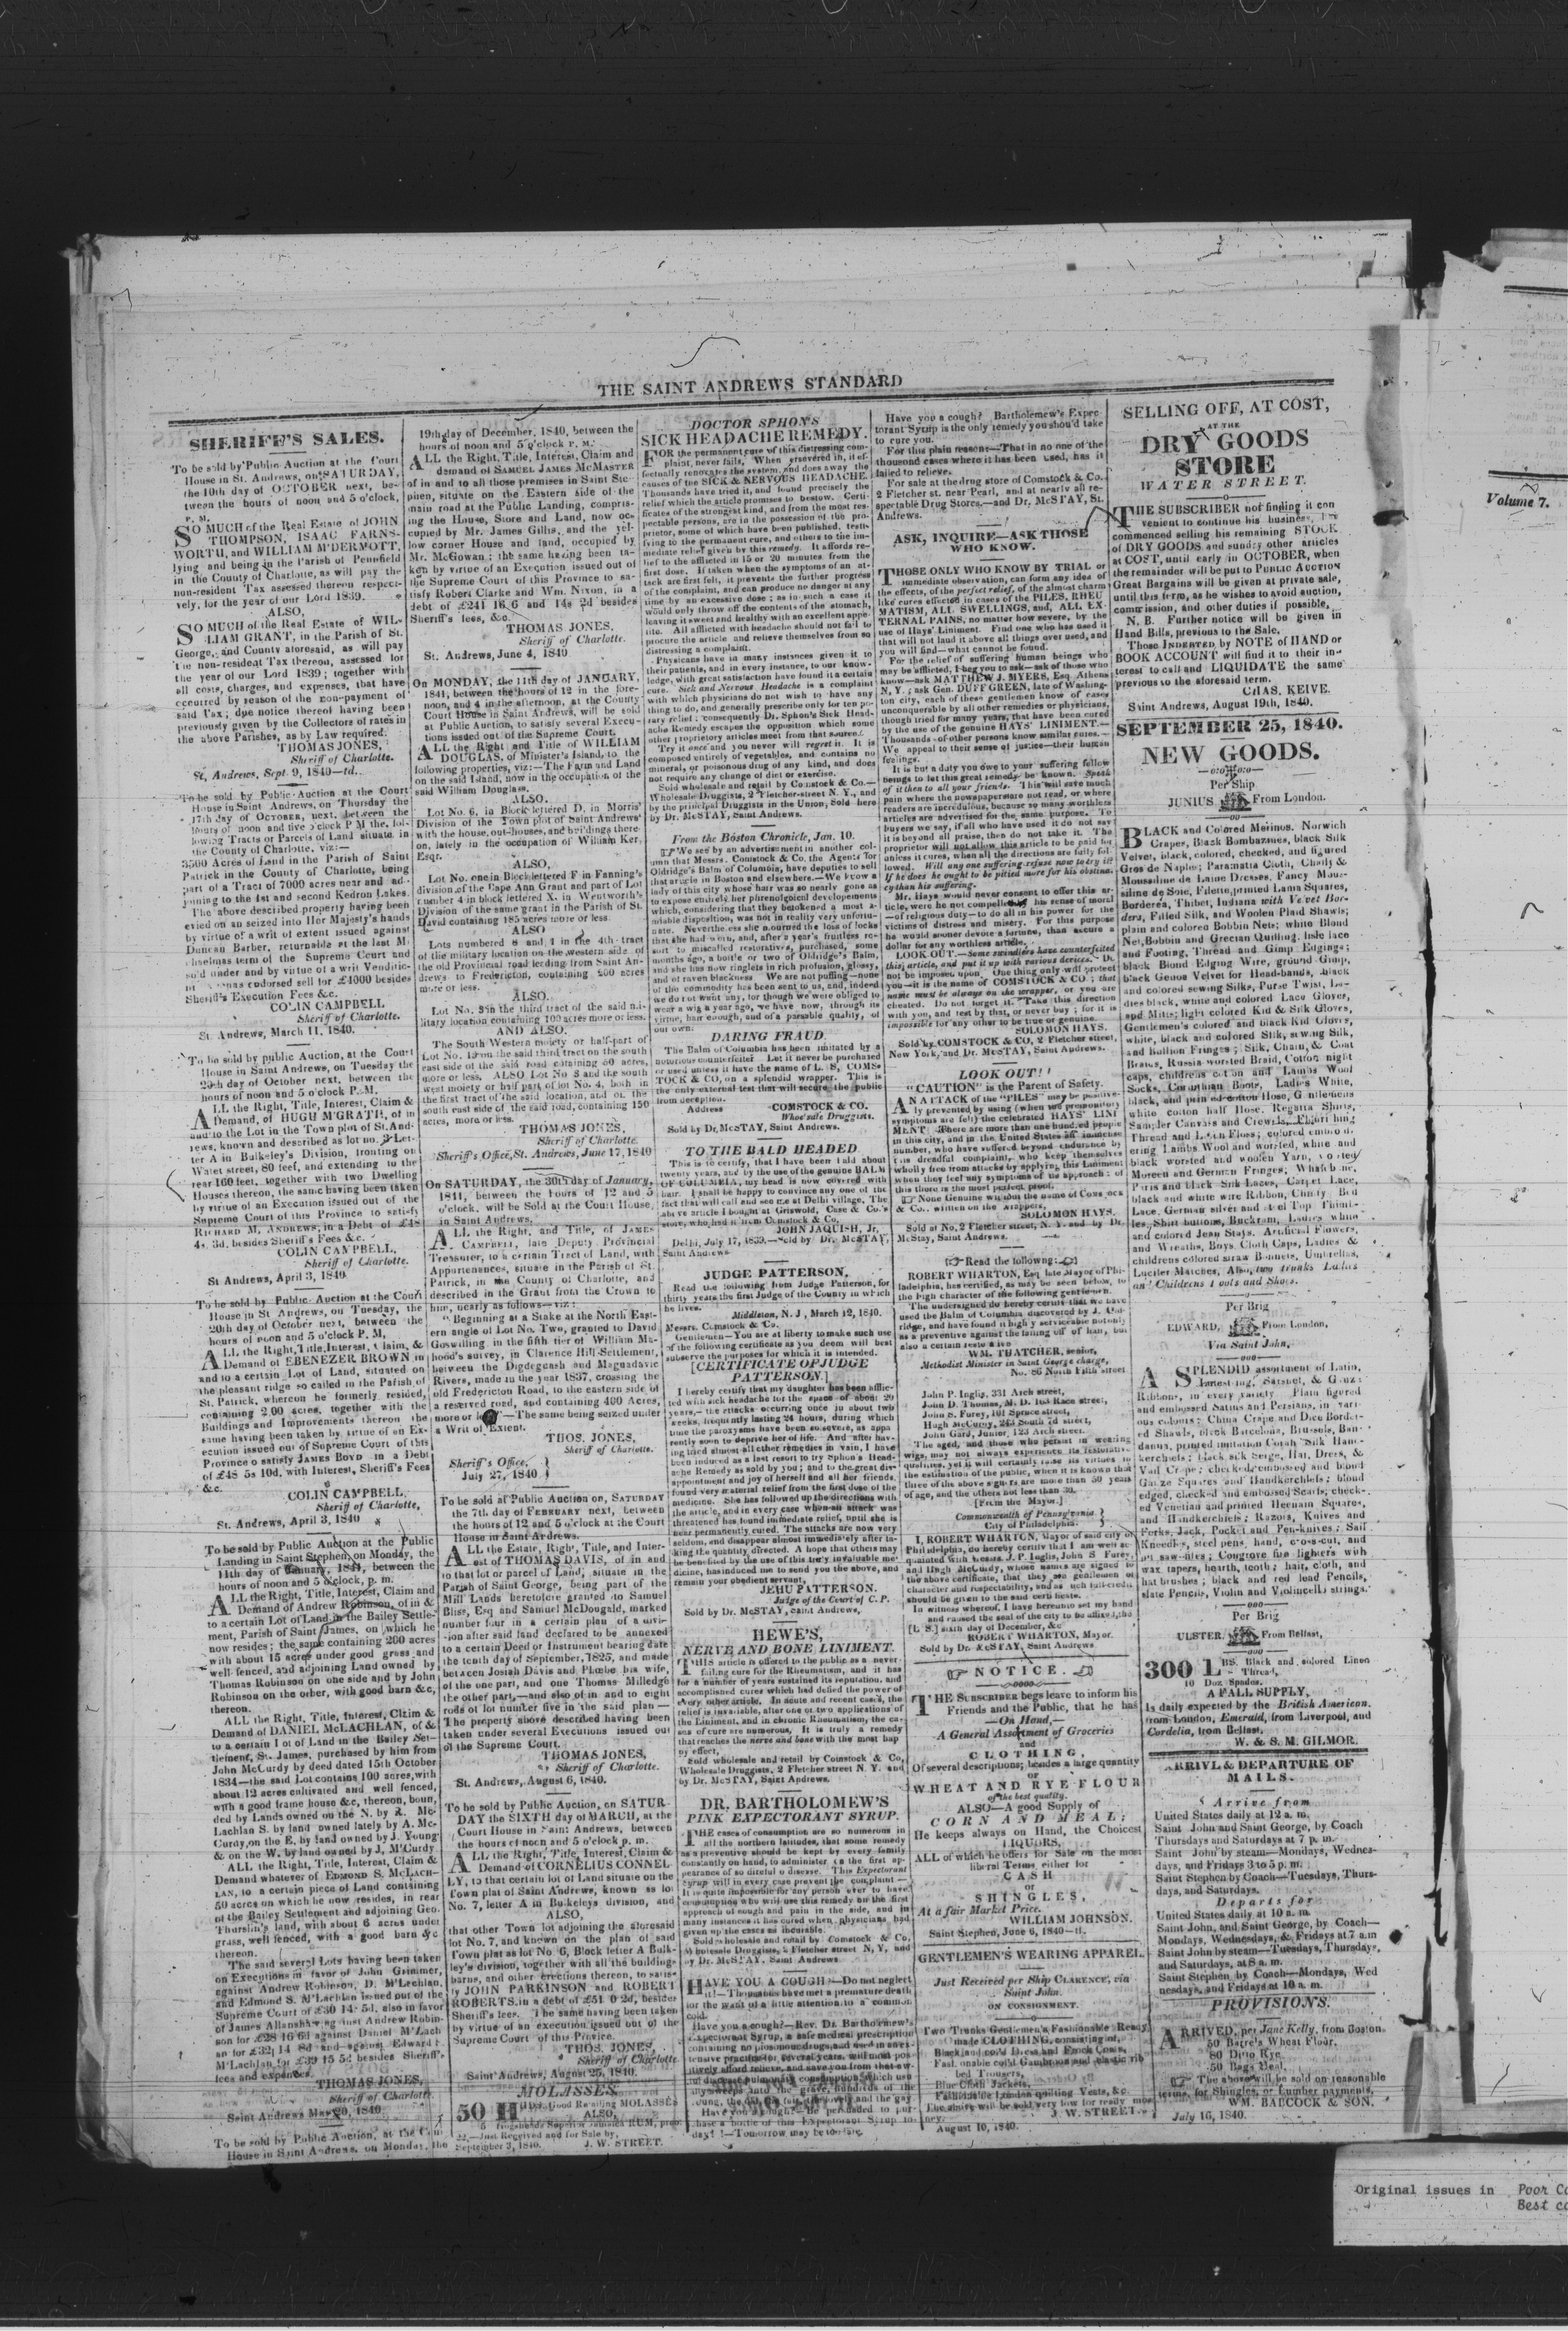 THE SAINT ANDREWS STANDARD
SHERIFF'S SALES.
To be sold by Public Auction at the Court
House in St. Andrews, on SATURDAY,
the 10th day of OCTOBER next, be-
tween the hours of noon and 5 o'clock,
P. M.
SO MUCH of the Real Estate of JOHN
THOMPSON, ISAAC FARNS-
WORTH, and WILLIAM M'DERMOTT,
lying and being in the Parish of Pennfield
in the County of Charlotte, as will pay the
non-resident Tax assessed thereon respect-
vely, for the year of our Lord 1839.
ALSO,
SO MUCH of the Real Estate of WIL-
LIAM GRANT, in the Parish of St.
George, and County aforesaid, as will pay
the non-resident Tax thereon, assessed for
the year of our Lord 1839; together with
all costs, charges, and expenses, that have
occurred by reason of the non-payment of
said Tax; due notice thereof having been
previously given by the Collectors of rates in
the above Parishes, as by Law required.
THOMAS JONES,
Sheriff of Charlotte.
St, Andrews, Sept. 9, 1840—td.
To be sold by Public Auction at the Court
House in Saint Andrews, on Thursday the
17th day of OCTOBER, next, between the
hours of noon and five o'clock P M the fol-
lowing Tracts or Parcels of Land situate in
the County of Charlotte, viz:—
3500 Acres of Land in the Parish of Saint
Patrick in the County of Charlotte, being
part of a Tract of 7000 acres near and ad-
joining to the 1st and second Kedron Lakes.
The above described property having been
evied on an seized into Her Majesty's hands
by virtue of a writ of extent issued against
Duncan Barber, returnable at the last M
chaelmas term of the Supreme Court and
so'd under and by virtue of a writ Venditic-
endorsed sell for £4000 besides
Sheriff's Execution Fees &c.
COLIN CAMPBELL
Sheriff of Charlotte.
St. Andrews, March 11, 1840.
To be sold by public Auction, at the Court
House in Saint Andrews, on Tuesday the
20th day of October next, between the
hours of noon and 5 o'clock P. M.
ALL the Right, Title, Interest, Claim &
Demand, of HUGH M'GRATH, of in
and to the Lot in the Town plot of St. And-
rews, known and described as lot no. 3 Let-
ter A in Bulkeley's Division, fronting on
Water street, 80 feet, and extending to the
rear 160 feet, together with two Dwelling
Houses thereon, the same having been taken
by virtue of an Execution issued out of the
Supreme Court of this Province to satisfy
RICHARD M. ANDREWS, in a Debt of £48
4s. 3d. besides Sheriff's Fees &c.
COLIN CAMPBELL,
Sheriff of Charlotte.
St Andrews, April 3, 1840.
To be sold by Public Auction at the Court
House in St. Andrews, on Tuesday, the
20th day of October next, between the
hours of noon and 5 o'clock P. M,
ALL the Right, Title, Interest, Claim, &
Demand of EBENEZER BROWN in
and to a certain Lot of Land, situated on
the pleasant ridge so called in the Parish of
St. Patrick, whereon he formerly resided,
containing 200 acres, together with the
Buildings and Improvements thereon the
same having been taken by virtue of an Ex-
ecution issued out of Supreme Court of this
Province to satisfy JAMES BOYD in a Debt
of £48 5s 10d, with Interest, Sheriff's Fees
&c.
COLIN CAMPBELL,
Sheriff of Charlotte,
St. Andrews, April 3, 1840
To be sold by Public Auction at the Public
Landing in Saint Stephen, on Monday, the
14th day of January, 1841, between the
hours of noon and 5 o'clock, p. m.
ALL the Right, Title, Interest, Claim and
Demand of Andrew Robinson, of in &
to a certain Lot of Land in the Bailey Settle-
ment, Parish of Saint James, on which he
now resides; the same containing 200 acres
with about 15 acres under good grass and
well fenced, and adjoining Land owned by
Thomas Robinson on one side and by John
Robinson on the other, with good barn &c,
thereon.
ALL the Right, Title, Interest, Claim &
Demand of DANIEL McLACHLAN, of &
to a certain Lot of Land in the Bailey Set-
tlement, St. James, purchased by him from
John McCurdy by deed dated 15th October
1834—the said Lot contains 100 acres, with
about 12 acres cultivated and well fenced,
with a good frame house &c, thereon, boun,
ded by Lands owned on the N. by R. Mc-
Lachlan S. by land owned lately by A. Mc-
Curdy, on the E, by land owned by J. Young
& on the W. by land owned by J, M'Curdy
ALL the Right, Title, Interest, Claim &
Demand whatever of EDMOND S. McLACH-
LAN, to a certain piece of Land containing
50 acres on which he now resides, in rear
of the Bailey Settlement and adjoining Geo.
Thurslin's land, with about 6 acres under
grass, well fenced, with a good barn &c
thereon.
The said several Lots having been taken
on Executions in favor of John Grimmer,
against Andrew Robinson, D. M'Lachlan,
and Edmond S. M'Lachlan issued out of the
Supreme Court of £30 14 5d, also in favor
of James Allanshaw against Andrew Robin-
son for £28 16 6d against Daniel M'Lach
an for £32 14 8d and against Edward
M'Lachlan for £39 15 5d besides Sheriff's
fees and expenses.
THOMAS JONES,
Sheriff of Charlotte.
Saint Andrews May 20, 1840.
To be sold by Public Auction, at the C
House in Saint Andrews, on Monday, the
19th day of December, 1840, between the
hours of noon and 5 o'clock P. M.
ALL the Right, Title, Interest, Claim and
demand of SAMUEL JAMES McMASTER
of in and to all those premises in Saint Ste-
phen, situate on the Eastern side of the
main road at the Public Landing, compris-
ing the House, Store and Land, now oc-
cupied by Mr. James Gillis, and the yel-
low corner House and land, occupied by
Mr. McGowan; the same having been ta-
ken by virtue of an Execution issued out of
the Supreme Court of this Province to sa-
tisfy Robert Clarke and Wm. Nixon, in a
debt of £241 16 6 and 14s 2d besides
Sheriff's fees, &c.
THOMAS JONES,
Sheriff of Charlotte.
St. Andrews, June 4, 1840.
On MONDAY, the 11th day of JANUARY,
1841, between the hours of 12 in the fore-
noon, and 4 in the afternoon, at the County
Court House in Saint Andrews, will be sold
at Public Auction, to satisfy several Execu-
tions issued out of the Supreme Court.
ALL the Right and Title of WILLIAM
DOUGLAS, of Minister's Island, to the
following properties, viz:—The Farm and Land
on the said Island, now in the occupation of the
said William Douglass.
ALSO.
Lot No. 6, in Block lettered D, in Morris'
Division of the Town plot of Saint Andrews'
with the house, out-houses, and buildings there-
on, lately in the occupation of William Ker,
Esqr.
ALSO,
Lot No. one in Block lettered F in Fanning's
division of the Cape Ann Grant and part of Lot
number 4 in block lettered X, in Wentworth's
Division of the same grant in the Parish of St.
David containing 185 acres more or less.
ALSO
Lots numbered 8 and 1 in the 4th tract
of the military location on the western side of
the old Provincial road leading from Saint An-
drews to Fredericton, containing 200 acres
more or less.
ALSO.
Lot No. 8 in the third tract of the said mi-
litary location containing 100 acres more or less.
AND ALSO.
The South Western moiety or half-part of
Lot No. 19 on the said third tract on the south
east side of the said road containing 50 acres,
more or less. ALSO Lot No 3 and the south
west moiety or half part of lot No. 4, both in
the first tract of the said location, and on the
south east side of the said road, containing 150
acres, more or less.
THOMAS JONES,
Sheriff of Charlotte.
Sheriff's Office, St. Andrews, June 17, 1840
On SATURDAY, the 30th day of January,
1841, between the hours of 12 and 5
o'clock. will be Sold at the Court House,
in Saint Andrews,
ALL the Right, and Title, of JAMES
CAMPBELL, late Deputy Provincial
Treasurer, to a certain Tract of Land, with
Appurtenances, situate in the Parish of St.
Patrick, in the County of Charlotte, and
described in the Grant from the Crown to
him, nearly as follows—viz:
"Beginning at a Stake at the North East-
ern angle of Lot No. Two, granted to David
Goswilling in the fifth tier of William Ma-
hood's survey, in Clarence Hill Settlement,
between the Digdeguash and Maguadavic
Rivers, made in the year 1837, crossing the
old Fredericton Road, to the eastern side of
a reserved road, and containing 400 Acres,
more or less"—The same being seized under
a Writ of Extent.
THOS. JONES,
Sheriff of Charlotte.
Sheriff's Office,
July 27, 1840
To be sold at Public Auction on, SATURDAY
the 7th day of FEBRUARY next, between
the hours of 12 and 5 o'clock at the Court
House in Saint Andrews.
ALL the Estate, Right, Title, and Inter-
est of THOMAS DAVIS, of in and
to that lot or parcel of Land, situate in the
Parish of Saint George, being part of the
Mill Lands heretofore granted to Samuel
Bliss, Esq and Samuel McDougald, marked
number four in a certain plan of a divi-
sion after said land declared to be annexed
to a certain Deed or Instrument bearing date
the tenth day of September, 1825, and made
between Josiah Davis and Phœbe his wife,
of the one part, and one Thomas Milledge
the other part,—and also of in and to eight
rods of lot number five in the said plan—
The property above described having been
taken under several Executions issued out
of the Supreme Court.
THOMAS JONES,
Sheriff of Charlotte.
St. Andrews, August 6, 1840.
To be sold by Public Auction, on SATUR-
DAY the SIXTH day of MARCH, at the
Court House in Saint Andrews, between
the hours of noon and 5 o'clock p. m.
ALL the Right, Title, Interest, Claim &
Demand of CORNELIUS CONNEL
LY, to that certain lot of Land situate on the
Town plat of Saint Andrews, known as lot
No. 7, letter A in Bulkeleys division, and
ALSO,
that other Town lot adjoining the aforesaid
lot No. 7, and known on the plan of said
Town plat as lot No 6, Block letter A Bulk-
ley's division, together with all the building-
barns, and other erections thereon, to satis-
fy JOHN PARKINSON and ROBERT
ROBERTS, in a debt of £51 0 2d, besides
Sheriff's fees. The same having been taken
by virtue of an execution issued out of the
Supreme Court of this Province.
THOS. JONES,
Sheriff of Charlotte
Saint Andrews, August 25, 1840.
MOLASSES
50 HHDS. Good Retailing MOLASSES
ALSO,
Jamaica RUM,
—Just Received and for Sale by,
September 3, 1840. J. W. STREET.
DOCTOR SPHON'S
SICK HEADACHE REMEDY.
FOR the permanent cure of this distressing com-
plaint, never fails. When persevered in, it ef-
fectually renovates the system, and does away the
causes of the SICK & NERVOUS HEADACHE.
Thousands have tried it, and found precisely the
relief which the article promises to bestow. Certi-
ficates of the strongest kind, and from the most res-
pectable persons, are in the possession of the pro-
prietor, some of which have been published, testi-
fying to the permanent cure, and others to the im-
mediate relief given by this remedy. It affords re-
lief to the afflicted in 15 or 20 minutes from the
first dose. If taken when the symptoms of an at-
tack are first felt, it prevents the further progress
of the complaint, and can produce no danger at any
time by an excessive dose; as in such a case it
would only throw off the contents of the stomach,
leaving it sweet and healthy with an excellent appe-
tite. All afflicted with headache should not fail to
procure the article and relieve themselves from so
distressing a complaint.
Physicians have in many instances given it to
their patients, and in every instance, to our know-
ledge, with great satisfaction have found it a certain
cure. Sick and Nervous Headache is a complaint
with which physicians do not wish to have any
thing to do, and generally prescribe only for ten po-
rary relief; consequently Dr. Sphon's Sick Head-
ache Remedy escapes the opposition which some
other proprietory articles meet from that source.
Try it once and you never will regret it. It is
composed entirely of vegetables, and contains no
mineral, or poisonous drug of any kind, and does
not require any change of diet or exercise.
Sold wholesale and retail by Comstock & Co.—
Wholesale Druggists, 2 Fletcher-street N. Y., and
by the principal Druggists in the Union, Sold here
by Dr. McSTAY, Saint Andrews.
From the Boston Chronicle, Jan. 10.
We see by an advertisement in another col-
umn that Messrs. Comstock & Co. the Agents for
Oldridge's Balm of Columbia, have deputies to sell
that article in Boston and elsewhere.—We know a
lady of this city whose hair was so nearly gone as
to expose entirely her phrenological developements
which, considering that they betokened a most a-
miable disposition, was not in reality very unfortu-
nate. Nevertheless she mourned the loss of locks
that she had worn, and, after a year's fruitless re-
sort to miscalled restoratives, purchased, some
months ago, a bottle or two of Oldridge's Balm,
and she has now ringlets in rich profusion, glossy,
and of raven blackness We are not puffing—none
of the commodity has been sent to us, and, indeed
we do not want any, for though we were obliged to
wear a wig a year ago, we have now, through its
virtue, hair enough, and of a passable quality, of
our own.
DARING FRAUD.
The Balm of Columbia has been imitated by a
notorious counterfeiter Let it never be purchased
or used unless it have the name of L. S, COMS-
TOCK & CO, on a splendid wrapper. This is
the only external test that will secure the public
from deception.
Address COMSTOCK & CO.
Wholesale Druggists.
Sold by Dr. McSTAY, Saint Andrews.
TO THE BALD HEADED
This is to certify, that I have been bald about
twenty years, and by the use of the genuine BALM
OF COLUMBIA, my head is now covered with
hair. I shall be happy to convince any one of the
fact that will call and see me at Delhi village. The
above article I bought at Griswold, Case & Co.'s
store, who had it from Comstock & Co,
JOHN JAQUISH, Jr,
Delhi, July 17, 1839.—Sold by Dr. McSTAY,
Saint Andrews.
JUDGE PATTERSON,
Read the following from Judge Patterson, for
thirty years the first Judge of the County in which
he lives.
Middleton, N. J, March 12, 1840.
Messrs. Comstock & Co.
Gentlemen—You are at liberty to make such use
of the following certificate as you deem will best
subserve the purposes for which it is intended.
[CERTIFICATE OF JUDGE
PATTERSON.]
I hereby certify that my daughter has been afflic-
ted with sick headache for the space of about 20
years,—the attacks occurring once in about two
weeks, frequently lasting 24 hours, during which
time the paroxysms have been so severe, as appa
rently soon to deprive her of life. And after hav-
ing tried almost all other remedies in vain, I have
been induced as a last resort to try Sphon's Head-
ache Remedy as sold by you; and to the great dis-
appointment and joy of herself and all her friends,
found very material relief from the first dose of the
medicine. She has followed up the directions with
the article, and in every case when an attack was
threatened has found immediate relief, until she is
near permanently cured. The attacks are now very
seldom, and disappear almost immediately after ta-
king the quantity directed. A hope that others may
be benefited by the use of this truly invaluable me-
dicine, has induced me to send you the above, and
remain your obedient servant,
JEHU PATTERSON.
Judge of the Court of C. P.
Sold by Dr. McSTAY, Saint Andrews,
HEWE'S,
NERVE AND BONE LINIMENT.
THIS article is offered to the public as a never-
failing cure for the Rheumatism, and it has
for a number of years sustained its reputation, and
accomplished cures which had defied the power of
every other article. In acute and recent cases, the
relief is invariable, after one or two applications of
the Liniment, and in chronic Rheumatism, the ca-
ses of cure are numerous. It is truly a remedy
that reaches the nerve and bone with the most hap
py effect,
Sold wholesale and retail by Comstock & Co,
Wholesale Druggists, 2 Fletcher street N. Y. and
by Dr. McSTAY, Saint Andrews.
DR. BARTHOLOMEW'S
PINK EXPECTORANT SYRUP.
THE cases of consumption are so numerous in
all the northern latitudes, that some remedy
as a preventive should be kept by every family
constantly on hand, to administer on the first ap-
pearance of so direful a disease. This Expectorant
Syrup will in every case prevent the complaint—
It is quite impossible for any person ever to have
consumption who will use this remedy on the first
approach of cough and pain in the side, and in
many instances it has cured when physicians had
given up the cases as incurable.
Sold wholesale and retail by Comstock & Co,
Wholesale Druggists, 2 Fletcher street N, Y, and
by Dr. McSTAY, Saint Andrews
HAVE YOU A COUGH?—Do not neglect
it!—Thousands have met a premature death
for the want of a little attention to a common
cold.
Have you a cough?—Rev. Dr. Bartholmew's
Expectorant Syrup, a safe medical prescription
containing no poisonous drugs, and used in an ex-
tensive practice for several years, will most pos-
itively afford relieve, and save you from that aw-
ful disease pulmonary consumption, which usu
ally sweeps into the grave, hundreds of the
young, the old, the fair, the lovely and the gay
Have you a cough?—Be persuaded to pur-
chase a bottle of this Expectorant Syrup to-
day!!—Tomorrow may be too late.
Have you a cough? Bartholemew's Expec-
torant Syrup is the only remedy you should take
to cure you.
For this plain reason—That in no one of the
thousand cases where it has been used, has it
failed to relieve.
For sale at the drug store of Comstock & Co.
2 Fletcher st. near Pearl, and at nearly all re-
spectable Drug Stores,—and Dr. McSTAY, St.
Andrews.
ASK, INQUIRE—ASK THOSE
WHO KNOW.
THOSE ONLY WHO KNOW BY TRIAL or
immediate observation, can form any idea of
the effects, of the perfect relief, of the almost charm
like cures effected in cases of the PILES, RHEU
MATISM, ALL SWELLINGS, and, ALL EX-
TERNAL PAINS, no matter how severe, by the
use of Hays' Liniment. Find one who has used it
that will not laud it above all things ever used, and
you will find—what cannot be found.
For the relief of suffering human beings who
may be afflicted, I beg you to ask—ask of those who
know—ask MATTHEW J. MYERS, Esq Athens
N, Y.; ask Gen. DUFF GREEN, late of Washing-
ton city, each of these gentlemen know of cases
unconquerable by all other remedies or physicians,
though tried for many years, that have been cured
by the use of the genuine HAYS' LINIMENT.—
Thousands of other persons know similar cures.—
We appeal to their sense of justice—their human
feelings.
It is but a duty you owe to your suffering fellow
beings to let this great remedy be known. Speak
of it then to all your friends. This will save much
pain where the newspapers are not read, or where
readers are incredulous, because so many worthless
articles are advertised for the same purpose. To
buyers we say, if all who have used it do not say
it is beyond all praise, then do not take it. The
proprietor will not allow this article to be paid for
unless it cures, when all the directions are fully fol-
lowed. Will any one suffering refuse now to try it?
If he does he ought to be pitied more for his obstina-
cy than his suffering.
Mr. Hays would never consent to offer this ar-
ticle, were he not compelled by his sense of moral
—of religious duty—to do all in his power for the
victims of distress and misery. For this purpose
he would sooner devote a fortune, than secure a
dollar for any worthless article.
LOOK OUT.—Some swindlers have counterfeited
this article, and put it up with various devices. Do
not be imposed upon. One thing only will protect
you—it is the name of COMSTOCK & CO; that
name must be always on the wrapper, or you are
cheated. Do not forget it. Take this direction
with you, and test by that, or never buy; for it is
impossible for any other to be true or genuine.
SOLOMON HAYS.
Sold by COMSTOCK & CO, 2 Fletcher street,
New York, and Dr. McSTAY, Saint Andrews.
LOOK OUT!!
"CAUTION" is the Parent of Safety.
AN ATTACK of the "PILES" may be positive-
ly prevented by using (when the premonitory
symptoms are felt) the celebrated HAYS' LINI
MENT There are more than one hundred people
in this city, and in the United States an immense
number, who have suffered beyond endurance by
this dreadful complaint, who keep themselves
wholly free from attacks by applying this Liniment
when they feel any symptoms of its approach: of
this there is the most perfect proof.
None Genuine without the name of Comstock
& Co. written on the wrappers,
SOLOMON HAYS.
Sold at No. 2 Fletcher street, N. Y. and by Dr.
McStay, Saint Andrews.
Read the following:
ROBERT WHARTON, Esq late Mayor of Phi-
ladelphia, has certified, as may be seen below, to
the high character of the following gentlemen.
The undersigned do hereby certify that we have
used the Balm of Columbia discovered by J. Old-
ridge, and have found it highly serviceable not only
as a preventive against the falling off of hair, but
also a certain restorative
WM. THATCHER, senior,
Methodist Minister in Saint George charge,
No. 86 North Fifth street
John P. Inglis, 331 Arch street,
John D. Thomas, M. D. 163 Race street,
John S. Furey, 101 Spruce street,
Hugh McCurdy, 243 South 7d street,
John Gard, Junior, 123 Arch street.
The aged, and those who persist in wearing
wigs, may not always experience its restorative
qualities, yet it will certainly raise its virtues in
the estimation of the public, when it is known that
three of the above signers are more than 50 years
of age, and the others not less than 30.
[From the Mayor.]
Commonwealth of Pennsylvania
City of Philadelphia.
I, ROBERT WHARTON, Mayor of said city of
Philadelphia, do hereby certify that I am well ac-
quainted with Messrs. J. P. Inglis, John S Furey,
and Hugh McCurdy, whose names are signed to
the above certificate, that they are gentlemen of
character and respectability, and as such full credit
should be given to the said certificate.
In witness whereof, I have hereunto set my hand
and caused the seal of the city to be affixed, the
[L S.] sixth day of December, &c
ROBERT WHARTON, Mayor.
Sold by Dr. McSTAY, Saint Andrews
NOTICE.
THE SUBSCRIBER begs leave to inform his
Friends and the Public, that he has
—On Hand,—
A General Assortment of Groceries
and
CLOTHING,
Of several descriptions; besides a large quantity
OF
WHEAT AND RYE FLOUR
of the best quality.
ALSO—A good Supply of
CORN AND MEAL;
He keeps always on Hand, the Choicest
LIQUORS,
ALL of which he offers for Sale on the most
liberal Terms, either for
CASH
or
SHINGLES,
At a fair Market Price.
WILLIAM JOHNSON.
Saint Stephen, June 6, 1840—tl.
GENTLEMEN'S WEARING APPAREL.
Just Received per Ship CLARENCE, via
Saint John.
ON CONSIGNMENT.
Two Trunks Gentlemen's Fashionable Ready
made CLOTHING, consisting of,
Black and col'd Dress and Frock Coats,
Fashionable col'd Gambroon and elastic rib
bed Trousers,
Blue Cloth Jackets,
Fashionable London quilting Vests, &c.
The above will be sold very low for ready mo-
ney.
J. W. STREET.
August 10, 1840.
SELLING OFF, AT COST,
AT THE
DRY GOODS
STORE
WATER STREET.
THE SUBSCRIBER not finding it con
venient to continue his business, has
commenced selling his remaining STOCK
of DRY GOODS and sundry other articles
at COST, until early in OCTOBER, when
the remainder will be put to PUBLIC AUCTION
Great Bargains will be given at private sale,
until this term, as he wishes to avoid auction,
commission, and other duties if possible,
N. B. Further notice will be given in
Hand Bills, previous to the Sale.
Those INDEBTED by NOTE of HAND or
BOOK ACCOUNT will find it to their in-
terest to call and LIQUIDATE the same
previous to the aforesaid term.
CHAS. KEIVE.
Saint Andrews, August 19th, 1840.
SEPTEMBER 25, 1840.
NEW GOODS.
Per Ship
JUNIUS From London.
BLACK and Colored Merinos. Norwich
Crapes, Black Bombazines, black Silk
Velvet, black, colored, checked, and figured
Gros de Naples; Paramatta Cloth, Chally &
Mousseline de Laine Dresses, Fancy Mous-
siline de Soie, Filette, printed Lama Squares,
Borderea, Thibet, Indiana with Velvet Bor-
ders, Filled Silk, and Woolen Plaid Shawls;
plain and colored Bobbin Nets; white Blond
Net, Bobbin and Grecian Quilling, Isle lace
and Footing, Thread and Gimp Edgings;
black Blond Edging Wire, ground Gimp,
black Genoa Velvet for Head-bands, black
and colored sewing Silks, Purse Twist, La-
dies black, white and colored Lace Gloves,
and Mitts; light colored Kid & Silk Gloves,
Gentlemen's colored and black Kid Gloves,
white, black and colored Silk, sewing Silk,
and Bullion Fringes; Silk, Chain, & Coat
Braids, Russia worsted Braid, Cotton night
caps, childrens cotton and Lambs Wool
Socks, Corinthian Boots, Ladies White,
black, and printed cotton Hose, Gentlemens
white cotton half Hose. Regatta Shirts,
Sampler Canvas and Crewels,
Thread and Linen Floss; colored embroid-
ering Lambs Wool and worsted, white and
black worsted and woolen Yarn, worsted
Moreen and German Fringes; Whalebone,
Paris and black Silk Laces, Carpet Lace,
black and white wire Ribbon, Chinty Bed
Lace, German silver and steel Top Thimb-
les, Shirt buttons, Buckram, Ladies white
and colored Jean Stays. Artificial Flowers,
and Wreaths, Boys Cloth Caps, Ladies &
childrens colored straw Bonnets, Umbrellas,
Lucifer Matches, Also, two trunks Ladies
and Childrens Boots and Shoes.
Per Brig
EDWARD, From London,
Via Saint John,
A SPLENDID assortment of Latin,
Lutestring, Sarsnet, & Gauze
Ribbons, in every variety Plain figured
and embossed Satins and Persians, in vari-
ous colours; China Crape and Dice Border-
ed Shawls, black Barcelona, Brussels, Ban-
danna, printed imitation Corah Silk Hand-
kerchiefs; black silk Serge, Hat, Dress, &
Vail Crape; checked, embossed and blond
Gauze Squares and Handkerchiefs; blond
edged, checked and embossed Scarfs; check-
ed Venetian and printed Heenain Squares,
and Handkerchiefs; Razors, Knives and
Forks, Jack, Pocket and Pen-knives; Sail
Needles, steel pens, hand, cross-cut, and
pit saw-files; Congrove fusee lighters with
wax tapers, hearth, tooth; hair, cloth, and
hat brushes; black and red lead Pencils,
slate Pencils, Violin and Violincello strings.
Per Brig
ULSTER. From Belfast,
300 LBS. Black and colored Linen
Thread,
10 Doz Spades.
A FALL SUPPLY,
Is daily expected by the British American,
from London, Emerald, from Liverpool, and
Cordelia, from Belfast.
W. & S. M. GILMOR.
ARRIVL & DEPARTURE OF
MAILS.
Arrive from
United States daily at 12 a. m.
Saint John and Saint George, by Coach
Thursdays and Saturdays at 7 p. m.
Saint John by steam—Mondays, Wednes-
days, and Fridays 3 to 5 p. m.
Saint Stephen by Coach—Tuesdays, Thurs-
days, and Saturdays.
Departs for
United States daily at 10 a. m.
Saint John, and Saint George, by Coach—
Mondays, Wednesdays, & Fridays at 7 a.m
Saint John by steam—Tuesdays, Thursdays,
and Saturdays, at 8 a. m.
Saint Stephen by Coach—Mondays, Wed
nesdays, and Fridays at 10 a. m.
PROVISIONS.
ARRIVED, per Jane Kelly, from Boston
50 Barrels Wheat Flour,
80 Ditto Rye,
50 Bags Meal,
The above will be sold on reasonable
terms, for Shingles, or Lumber payments.
WM. BABCOCK & SON.
July 16, 1840.
Volume 7.
Original issues in Poor Co
Best co